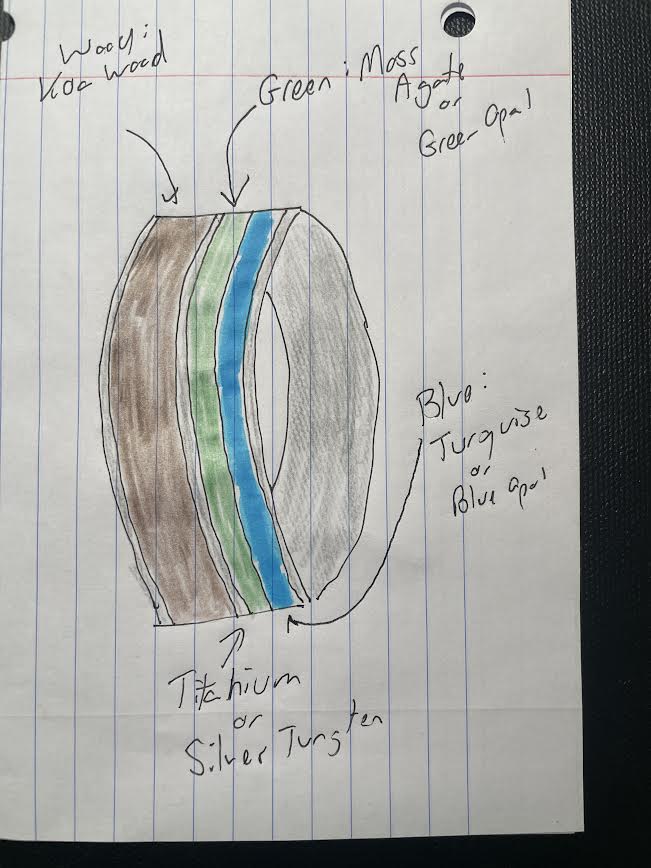 Wood:
Koa Wood
Green: Moss
Agate
or
Green Opal
Blue:
Turquise
or
Blue opal
Titanium
or
Silver Tungsten